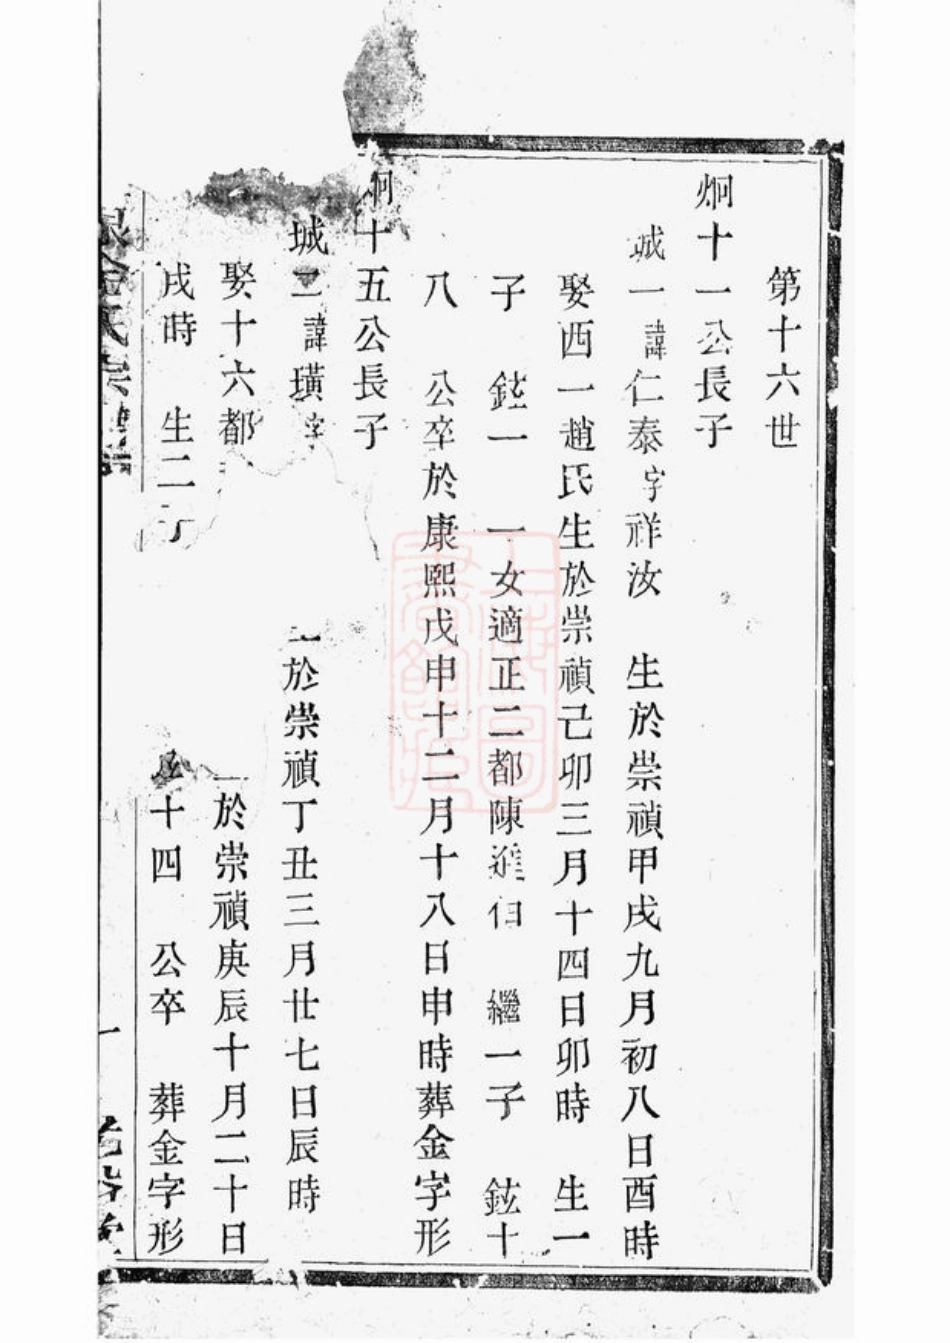 第十六世
炯十一公長子
城一諱仁泰字祥汝 生於崇禎甲戌九月初八日酉時
娶西一趙氏生於崇禎己卯三月十四日卯時 生一
子 鉉一 一女適正二都陳 伯 繼一子 鉉十
八 公卒於康熙戊申十二月十八日申時葬金字形
炯十五公長子
城二諱璜字 於崇禎丁丑三月廿七日辰時
娶十六都 於崇禎庚辰十月二十日
戌時 生二 十四 公卒 葬金字形
氏宗譜 一